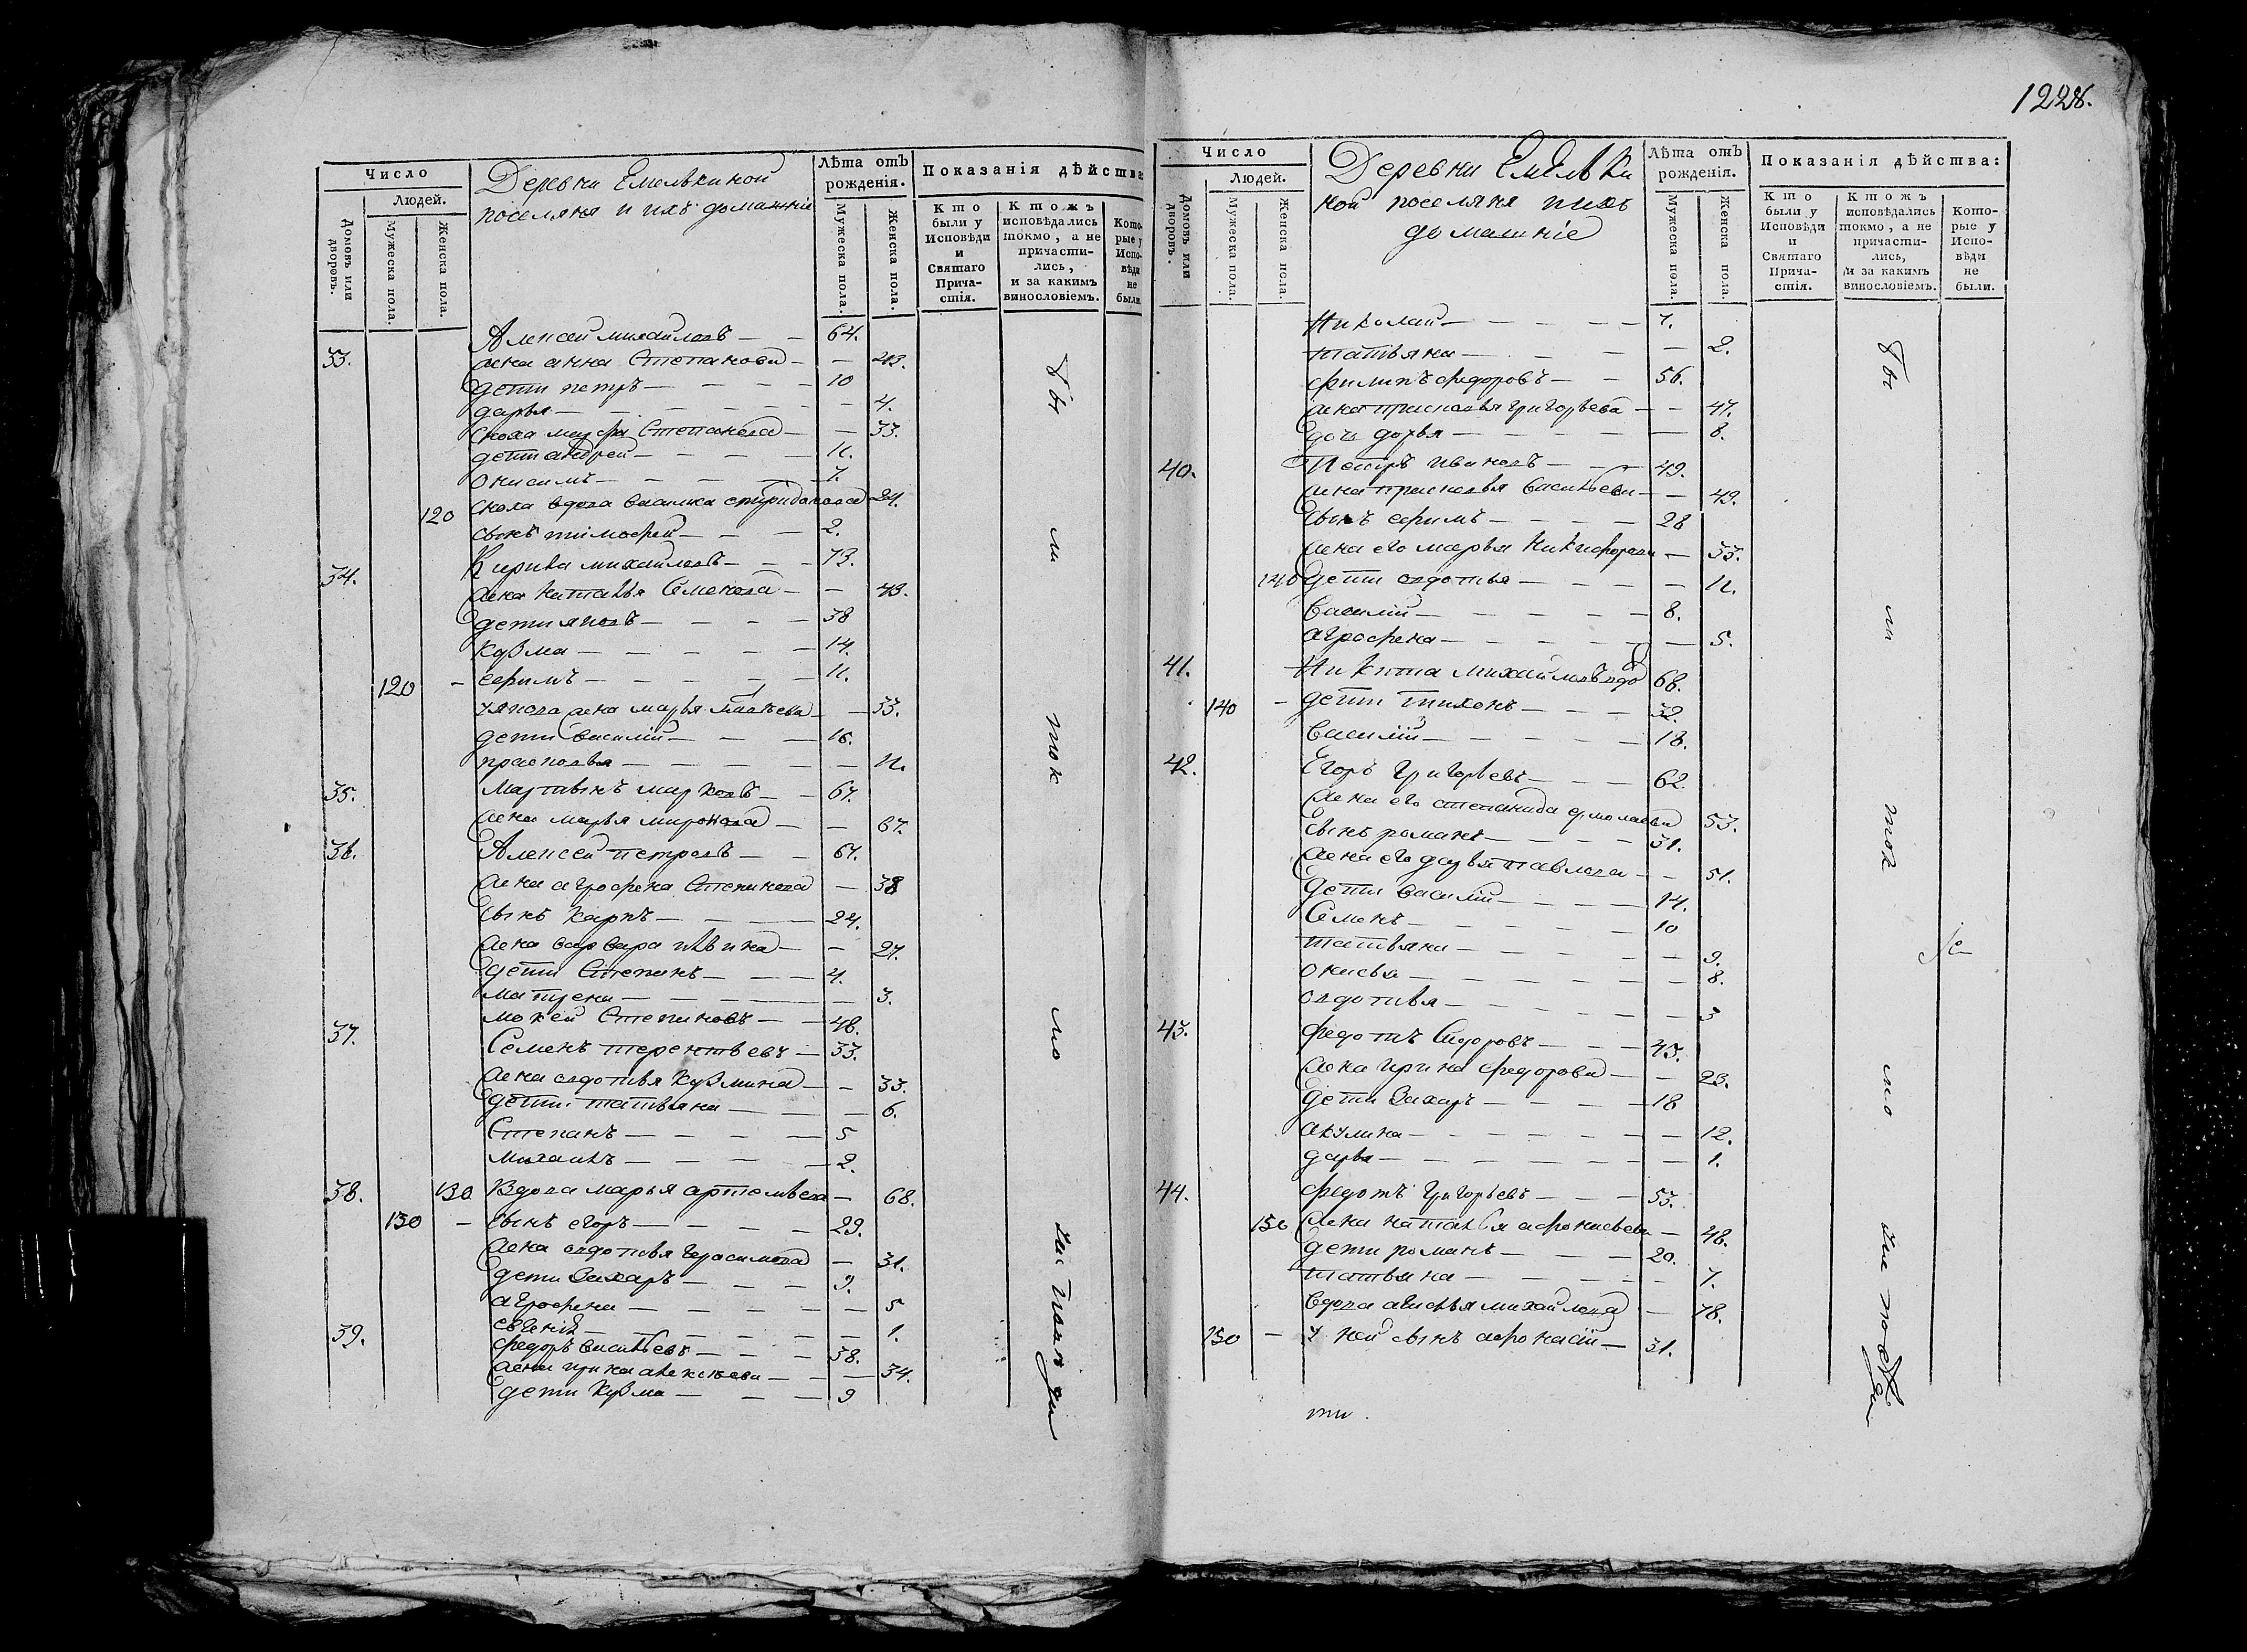 Число
Людей.
Домовъ или дворовъ.
Мужеска пола.
Женска пола.
Деревни Емелькиной
поселяня и ихъ домашніе
Лѣта отъ рожденія.
Мужеска пола.
Женска пола.
Показанія дѣйства
Кто были у Исповѣди и Святаго Причастія.
Ктожъ исповѣдались токмо, а не причастились, и за какимъ винословіемъ.
Которые у Исповѣди не были.
33. Алексей михайловъ — — 64.
жена анна Степанова — —
дети петръ — — — 10
дарья — — — 4.
сноха марфа Степанова — — 33.
дети андрей — — — 11.
онисимъ — — — 7.
120 сноха вдова василиса спиридонова 24.
сынъ тимофей — — 2.
34. Кирила михайловъ — — 73.
жена наталья Семенова — — 43.
дети яковъ — — — 38
кузма — — — 14.
120 — ефимъ — — — 11.
у якова жена марья — — 33.
дети василій — — — 16.
прасковья — — — 11.
35. Мартынъ марковъ — — 67.
жена марья миронова — — 67.
36. Алексей петровъ — — 67.
жена агрофена Степанова — 38
сынъ карпъ — — — 24.
жена варвара — — 27.
дети Степанъ — — — 4.
матрена — — — 3.
37. мокей Степановъ — — 48.
Семенъ терентьевъ — 33.
жена авдотья кузмина — — 33.
дети татьяна — — — 6.
Степанъ — — — 5
михаилъ — — — 2.
38. 130 Вдова марья артемьева — 68.
130 — сынъ егоръ — — — 29.
жена авдотья герасимова — 31.
дети Захаръ — — — 9.
агрофена — — — 5
евгенія — — — 1.
39. федоръ васильевъ — — — 38.
жена ирина алексеева — — 34.
дети кузма — — — 9
бы
ли
ток
мо
122
Число
Людей.
Домовъ или дворовъ.
Мужеска пола.
Женска пола.
Деревни Емельки
ной поселяня ихъ
домашніе
Лѣта отъ рожденія.
Мужеска пола.
Женска пола.
Показанія дѣйства:
Кто были у Исповѣди и Святаго Причастія.
Ктожъ исповѣдались токмо, а не причастились, и за какимъ винословіемъ.
Которые у Исповѣди не были.
Николай — — — 7.
татьяна — — — 2.
филипъ федоровъ — — 56.
жена прасковья григорьева — — 47.
дочь дарья — — — 8.
40. Петръ ивановъ — — 49.
жена прасковья васильева — — 49.
сынъ ефимъ — — — 28
жена его марья никифорова — 33.
140 дети авдотья — — — 11.
василій — — — 8.
агрофена — — — 5.
41. Никита михайловъ вдо 68.
140 — дети тихонъ — — — 32.
василій — — — 18.
42. Егоръ григорьевъ — — — 62.
жена его степанида ермолаева 53.
сынъ романъ — — — 31.
жена его дарья павлова — — 51.
дети василій — — — 14.
Семенъ — — — 10
татьяна — — — 9.
— — — 8.
авдотья — — — 3
43. федотъ Сидоровъ — — — 43.
жена ирина федорова — — 23.
дети Захаръ — — — 18
акулина — — — 12.
дарья — — — 1.
44. федотъ григорьевъ — — — 53.
150 жена наталья афонасьева — 48.
дети романъ — — — 20.
татьяна — — — 7.
вдова михайлова — 78.
150 — у ней сынъ афонасій — 31.
бы
ли
ток
мо
ти.